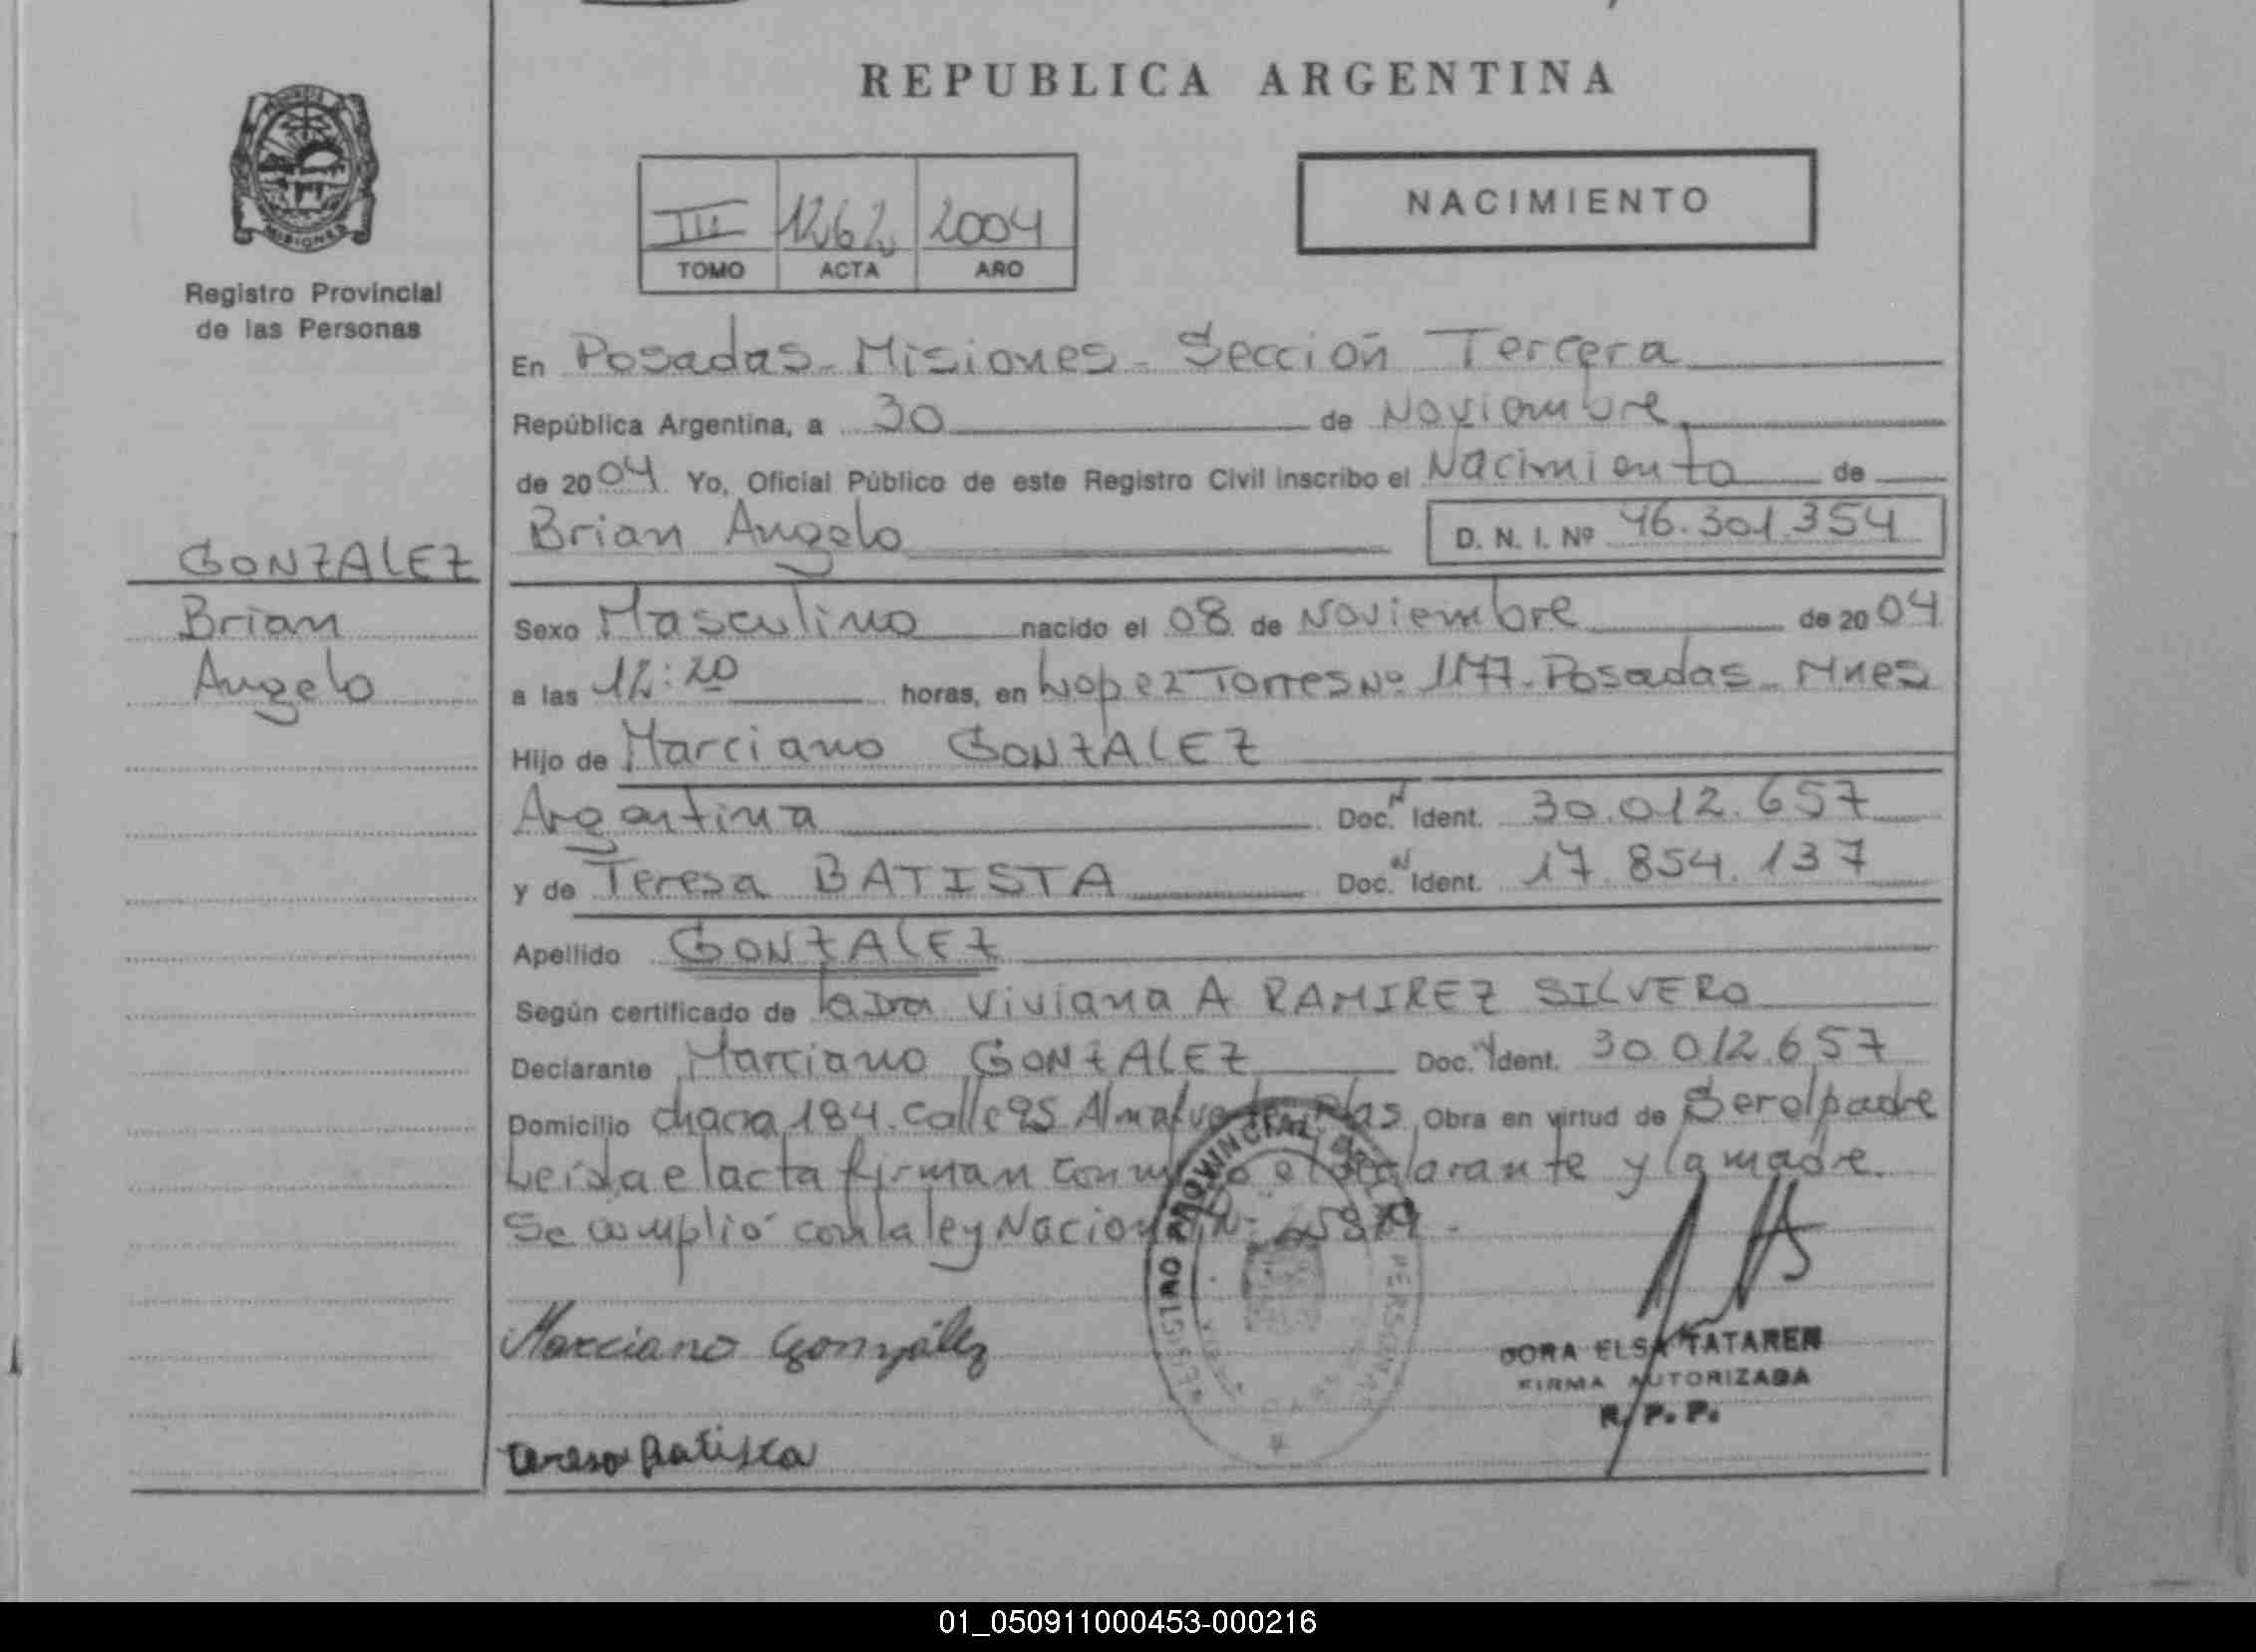 REPUBLICA ARGENTINA
MISIONES
Registro Provincial
de las Personas
III 1262 2004
TOMO ACTA AÑO
NACIMIENTO
En Posadas - Misiones - Sección Tercera
República Argentina, a 30 de Noviembre
de 2004 Yo, Oficial Público de este Registro Civil inscribo el Nacimiento de
Brian Angelo D. N. I. Nº 46.301.354
GONZALEZ
Brian
Angelo
Sexo Masculino nacido el 08 de Noviembre de 2004
a las 12:20 horas, en Lopez Torres Nº 1177 - Posadas - Mnes
Hijo de Marciano GONZALEZ
Argentina Doc. N Ident. 30.012.657
y de Teresa BATISTA Doc. N Ident. 17.854.137
Apellido GONZALEZ
Según certificado de la Dra Viviana A RAMIREZ SILVERO
Declarante Marciano GONZALEZ Doc. N Ident. 30.012.657
Domicilio chacra 184. Calle 95 Obra en virtud de Ser el padre
Leida el acta firman conmigo el declarante y la madre.
Se cumplió con la ley Nacional Nº
Marciano González
Teresa Batista
REGISTRO PROVINCIAL DE PERSONAS
DORA ELSA TATAREN
FIRMA AUTORIZADA
R. P. P.
01_050911000453-000216